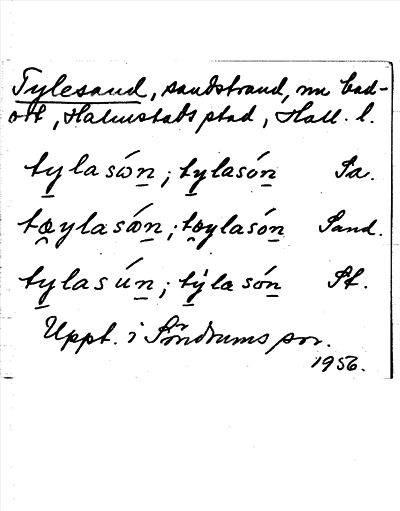 Tylesand, sandstrand, nu bad-
ort, Halmstads stad, Hall. l.
tylasón; tylasón Sa.
tæylasón; tæylasón Sand.
tylasún; týlasón St.
Uppt. i Söndrums sn.
1956.